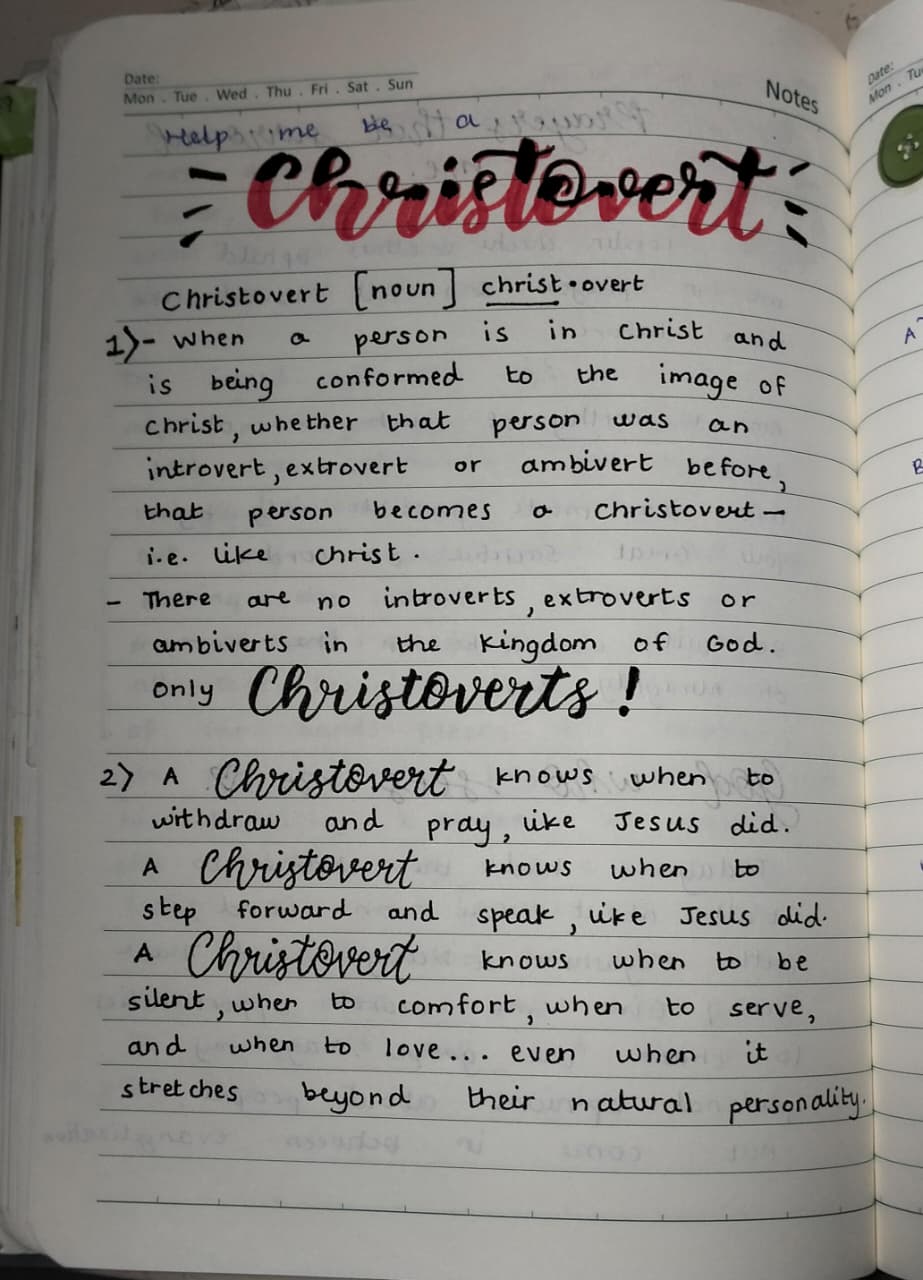 Date:
Mon . Tue . Wed . Thu . Fri . Sat . Sun
Notes
Help me be a
Christovert
Christovert [noun] christ•overt
1)- When a person is in Christ and
is being conformed to the image of
Christ, whether that person was an
introvert, extrovert or ambivert before,
that person becomes a Christovert –
i.e. like Christ.
- There are no introverts, extroverts or
ambiverts in the Kingdom of God.
Only Christoverts!
2) A Christovert knows when to
withdraw and pray, like Jesus did.
A Christovert knows when to
step forward and speak, like Jesus did.
A Christovert knows when to be
silent, when to comfort, when to serve,
and when to love... even when it
stretches beyond their natural personality.
Date:
Mon . Tu
A
B